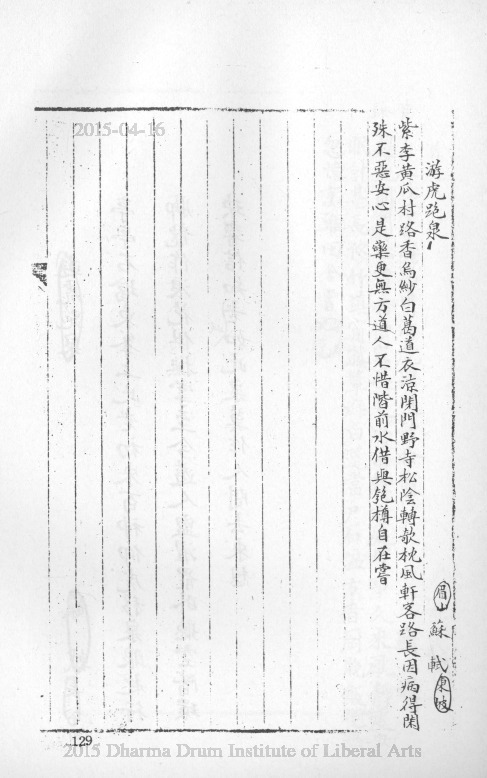 2015-04-16
游虎跑泉
眉山 蘇軾 東坡
紫李黃瓜村路香烏紗白葛道衣涼閉門野寺松陰轉欹枕風軒客路長因病得閑
殊不惡安心是藥更無方道人不惜階前水借與匏樽自在嘗
129
2015 Dharma Drum Institute of Liberal Arts